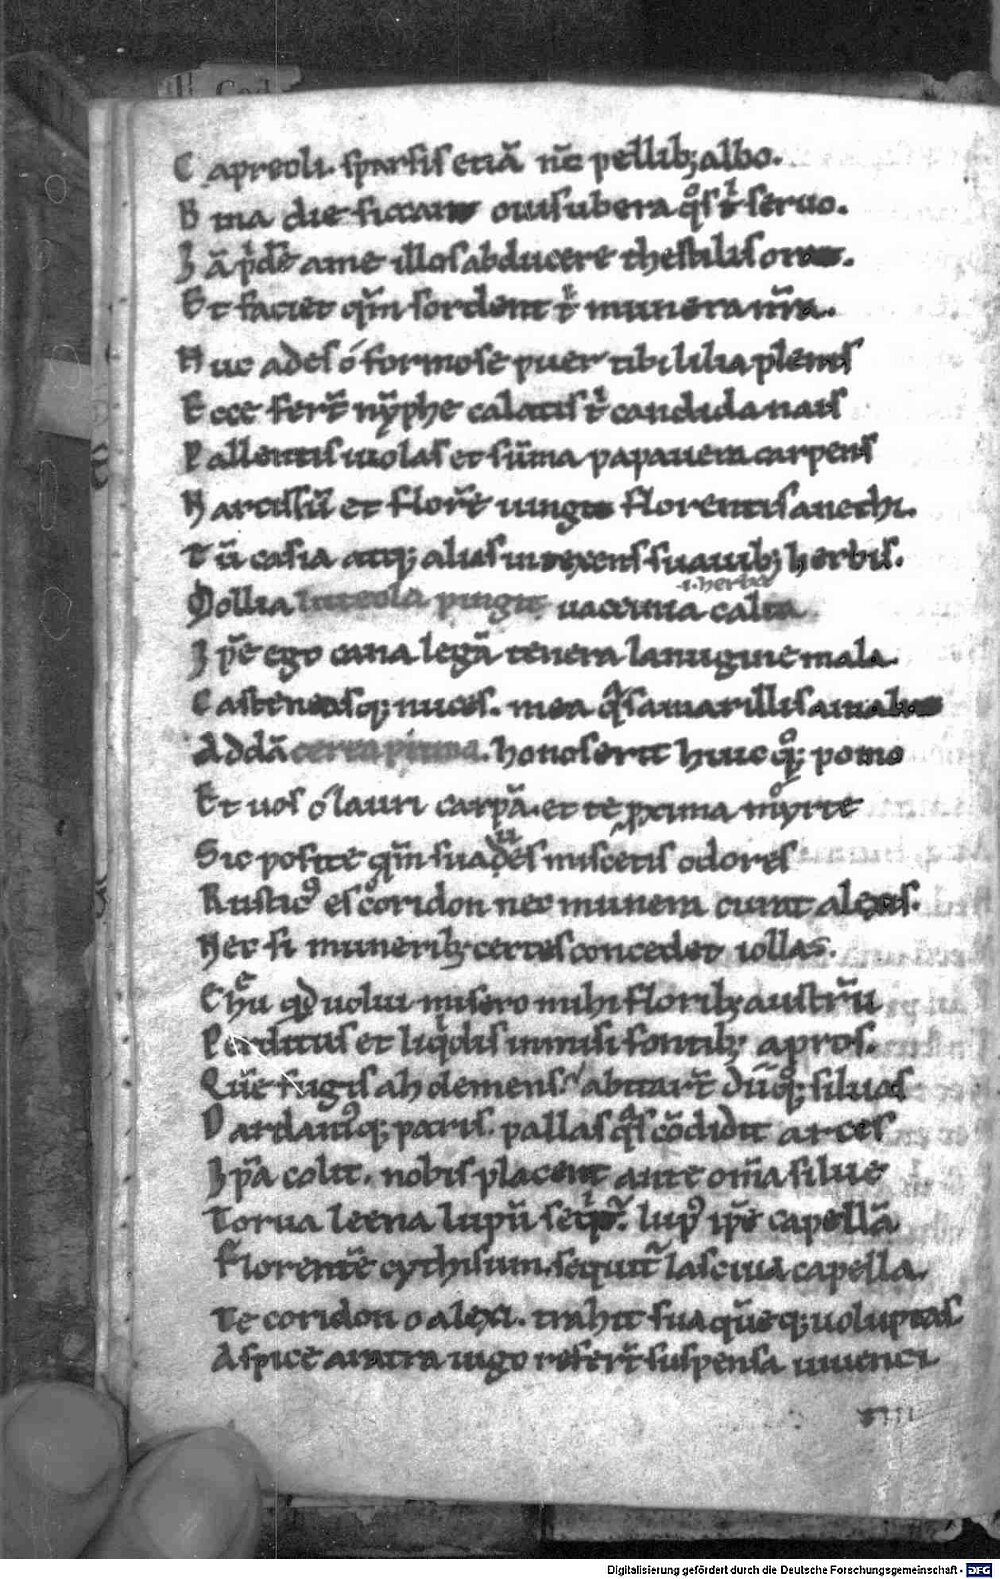 C apreoli. sparsis etiā nc̄ pellib; albo.
B ina die siccant ouis ubera qͦs tⁱ seruo.
I ā pͥdē a me illos abducere thestilis orat.
Et faciet qm̄ sordent tⁱ munera nr̄a.
H uc ades ó formose puer tibi lilia plenis
E cce ferūt ny̅phe calatis tⁱ candida nais
P allentis uiolas et sūma papauera carpens
N arcissū et florē iungit florentis anethi.
T ū casia atq; aliis intexens suauib; herbis.
.i. herba
Mollia luteola pingit uaccinia calta
I pse ego cana legā tenera lanugine mala.
C astaneasq; nuces. mea qͣs amarillis amabat
Addā cerea pruna. honos erit huic qͦ; pomo
Et uos o lauri carpā. et te ꝓxima myrte
Sic posite qm̄ suaues miscetis odores
Rusticꝰ es coridon nec munera curat alexis.
Nec si munerib; certes concedet iollas.
Cheu qd uolui misero mihi florib; austrū
Perditus et liqͥdis inmisi fontib; apros.
Quē fugis ah demens? abitarūt dii̅ qͦ; siluas
D ardaniꝰq; paris. pallas qͣs cōdidit arces
Ipa̅ colit. nobis placent ante om̄a silue
Torua leena lupū seqͥt̃. lupꝰ ipse capellā
Florentē cythisum. sequit̃ lasciua capella.
Te coridon o alexi. trahit sua quēq; uoluptas
Aspice aratra iugo referūt suspensa iuuenci
Digitalisierung gefördert durch die Deutsche Forschungsgemeinschaft - DFG